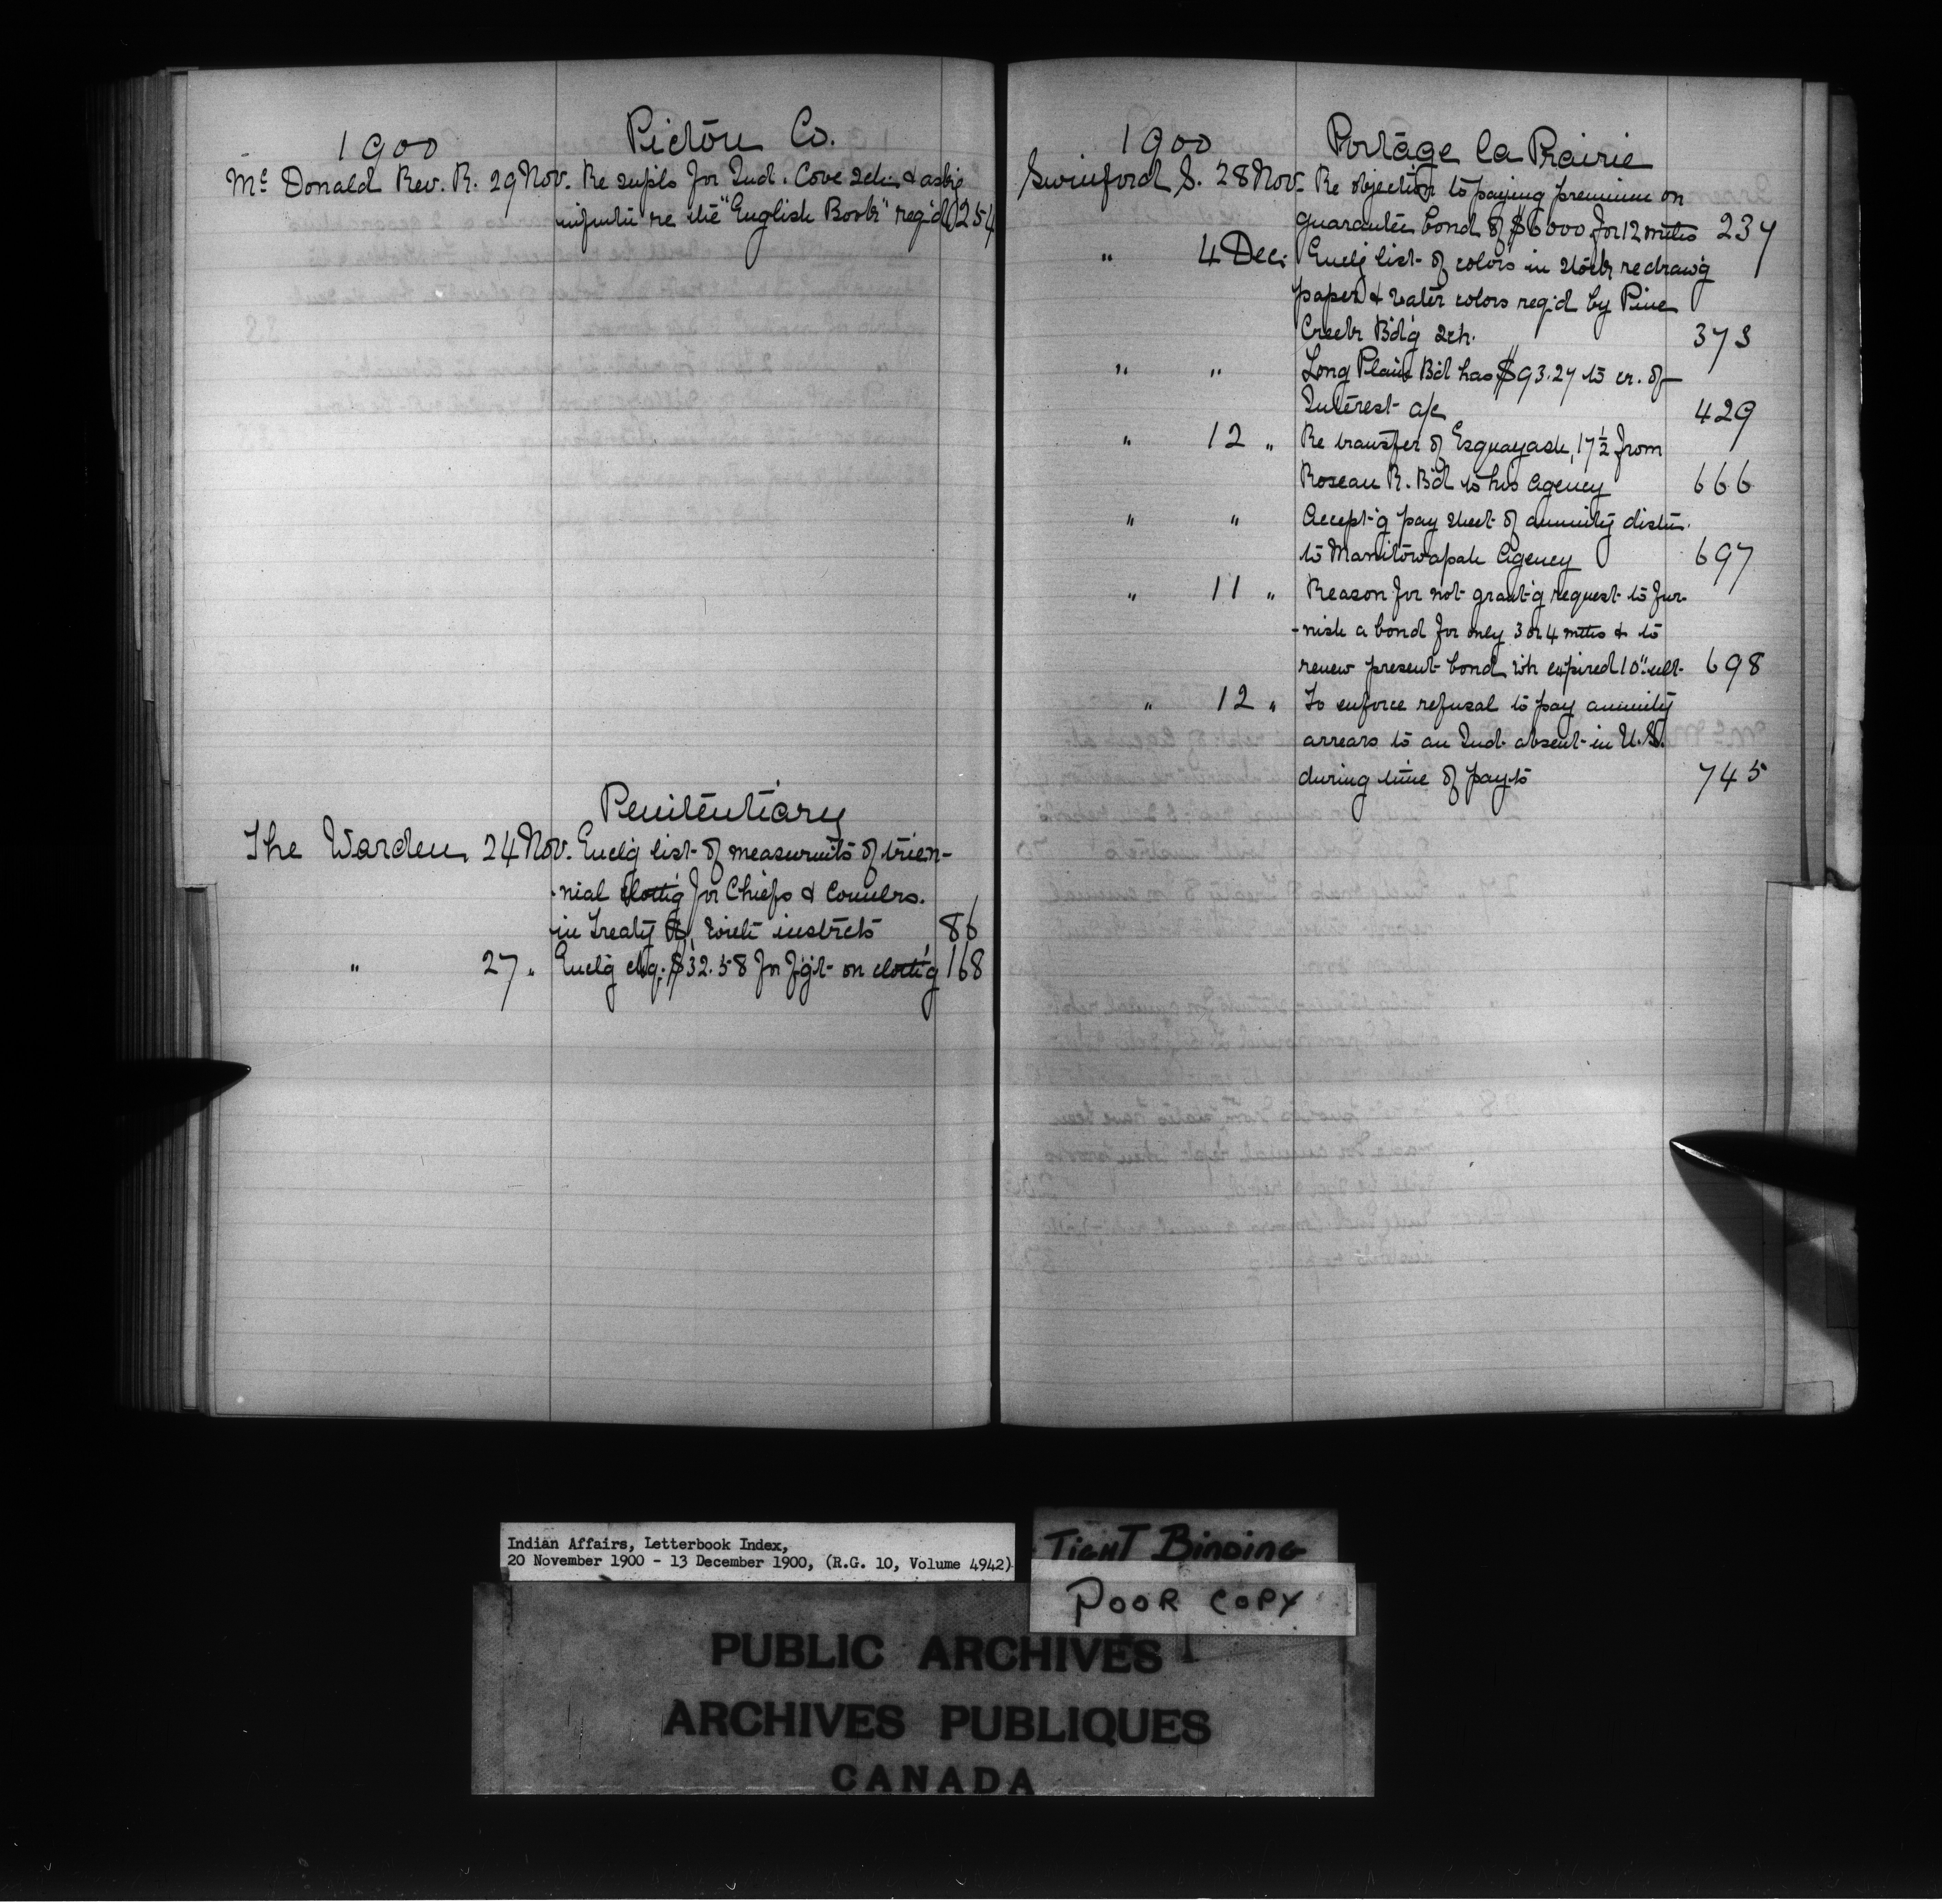 1900 Pictou Co.
Mc Donald Rev. R. 29 Nov. Re supls for Ind. Cove Sch. & askg
infmtn re the "English Book" req'd 254
Penitentiary
The Warden, 24 Nov. Enclg list of measurmts of trien-
-nial clothg for Chiefs & Counclrs.
in Treaty with instrcts 86
" 27 " Enclg chq. $32.58 for fg't on cloth'g 168
1900 Portage la Prairie
Swinford S. 28 Nov. Re objection to paying premium on
guarantee bond of $6000 for 12 mths 237
" 4 Dec. Enclg list of colors in stock re draw'g
paper & water colors req'd by Pine
Creek Bd'g Sch. 373
" " Long Plain Bd has $93.27 to cr. of
Interest a/c 429
" 12 " Re transfer of Esquayash, 17½ from
Roseau R. Bd to his agency 666
" " Accept'g pay sheet of annuity distn.
to Manitowapah Agency 697
" 11 " Reason for not grant'g request to fur-
-nish a bond for only 3 or 4 mths & to
renew present bond wh expired 10" ult. 698
" 12 " To enforce refusal to pay annuity
arrears to an Ind. absent in U.S.
during time of payts 745
Indian Affairs, Letterbook Index,
20 November 1900 - 13 December 1900, (R.G. 10, Volume 4942)
TIGHT BINDING
POOR COPY
PUBLIC ARCHIVES
ARCHIVES PUBLIQUES
CANADA